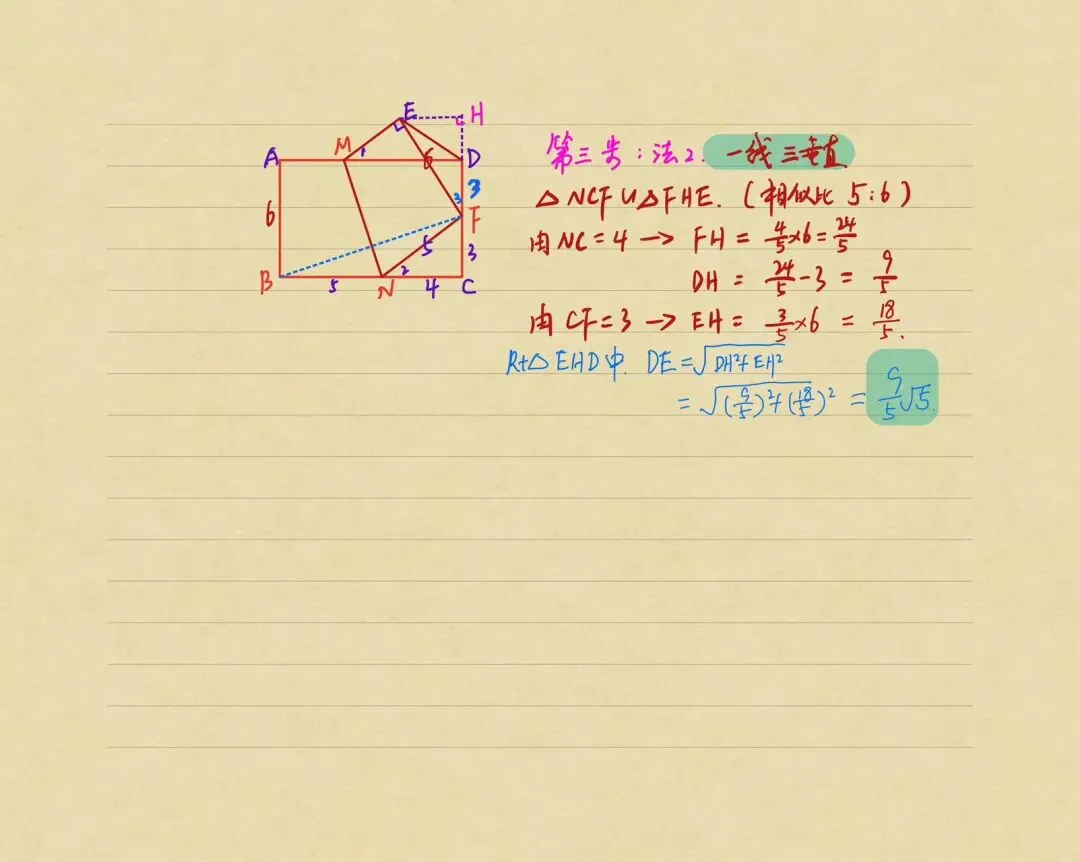 E H
M 1 6
A D
3
6 2 F
5 3
B 5 N 2 4 C
第三步：法2. 一线三垂直
△NCF∽△FHE. (相似比 5:6)
由NC=4→ FH = 4/5×6=24/5
DH = 24/5-3 = 9/5
由CF=3→ EH = 3/5×6 = 18/5.
Rt△EHD中. DE=√(DH²+EH²)
=√((9/5)²+(18/5)²) = 9/5√5.